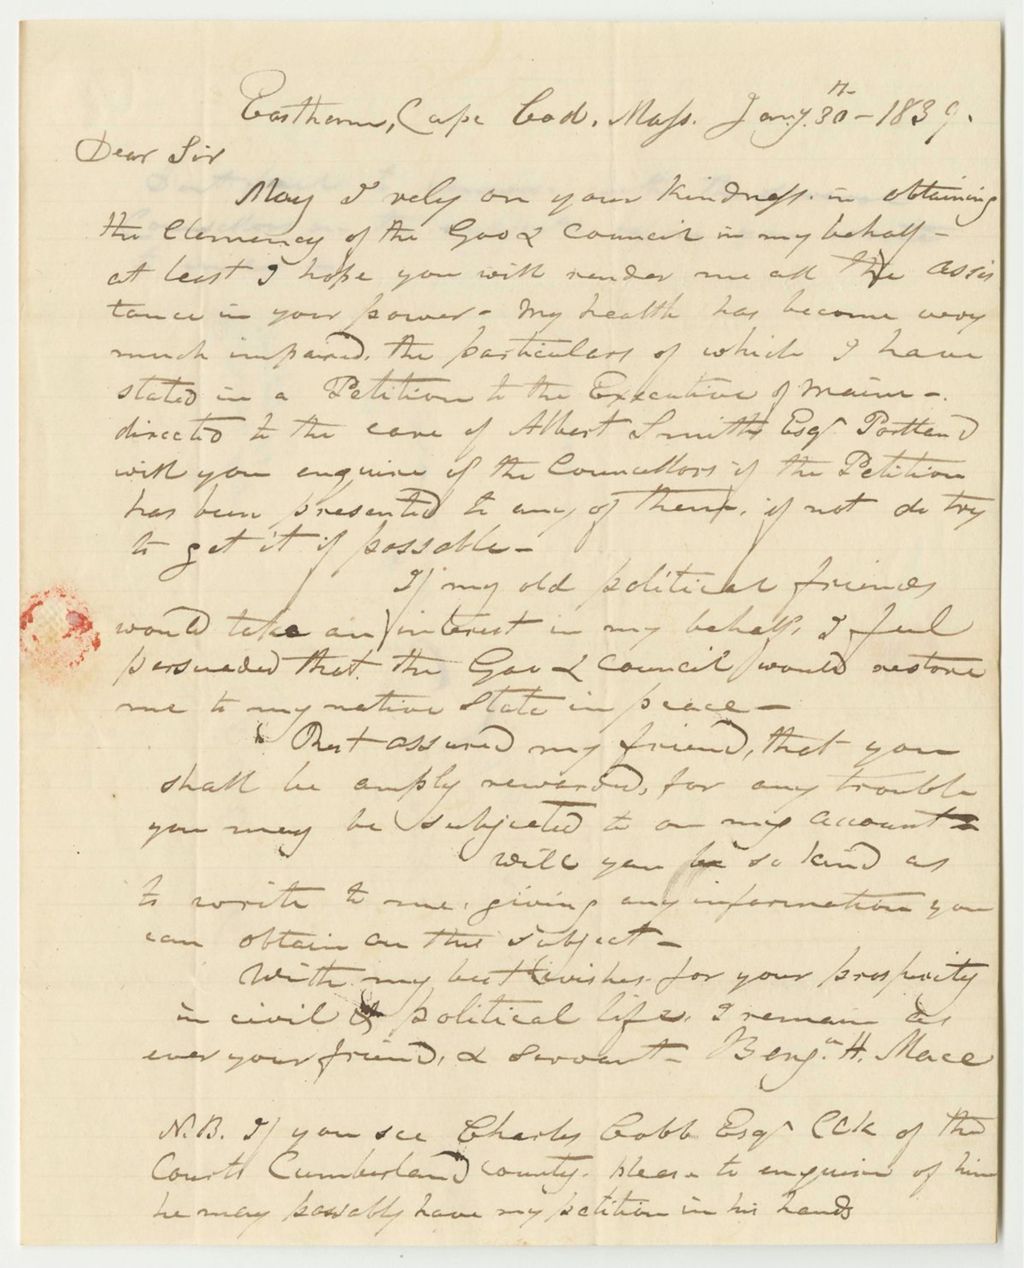 Eastham, Cape Cod. Mass. Jany. 30th - 1839.
Dear Sir
May I rely on your kindness in obtaining
the Clemency of the Gov & Council in my behalf -
at least I hope you will render me all the assis
tance in your power - My health has become very
much impaired, the particulars of which I have
stated in a Petition to the Executive of Maine -
directed to the care of Albert Smith Esqr Portland
will you enquire of the Councillors if the Petition
has been presented to any of them, if not do try
to get it if possable -
If my old political friends
would take an interest in my behalf, I feel
persuaded that the Gov & Council would restore
me to my native State in peace -
Rest assured my friend, that you
shall be amply rewarded, for any trouble
you may be subjected to on my account -
Will you be so kind as
to write to me, giving any information you
can obtain on this subject -
With my best wishes for your prosperity
in civil & political life, I remain as
ever your friend, & servant - Benjn H. Mace
N.B. If you see Charles Cobb Esqr Clk of the
Courts Cumberland County, please to enquire of him
he may possably have my petition in his hands